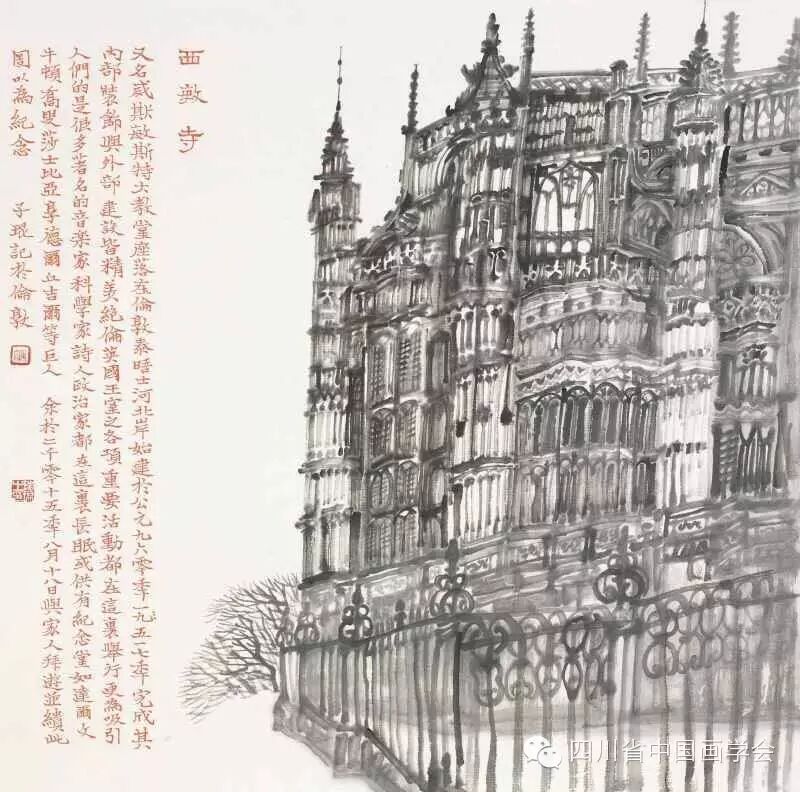 西敏寺
又名威斯敏斯特大教堂座落在倫敦泰晤士河北岸始建於公元九六零年一九五七年完成其
内部裝飾與外部建設皆精美絕倫英國王室之各項重要活動都在這裏舉行更為吸引
人們的是很多著名的音楽家科學家詩人政治家都在這裏長眠或供有紀念堂如達爾文
牛頓喬叟莎士比亞亨德爾丘吉爾等巨人 余於二千零十五年八月十八日與家人拜遊並繢此
圖以為紀念 子琨記於倫敦
四川省中国画学会